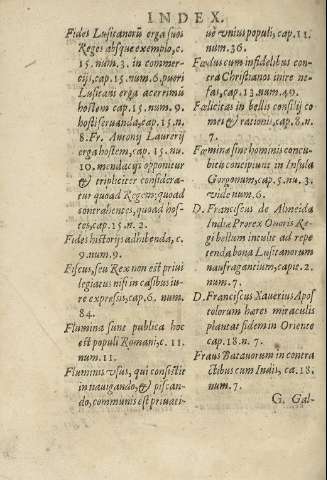 INDEX.
Fides Lusitanorũ erga suos
Reges absque exemplo, c.
15. num. 3. in commer-
cijs, cap. 15. num. 6. pueri
Lusitani erga acerrimũ
hostem cap. 15. num. 9.
hosti seruanda, cap. 15. n.
8. Fr. Antonij Laurerij
erga hostem, cap. 15. nu.
10. mendacijs opponitur
& tripliciter considera-
tur quoad Regem: quoad
contrahentes, quoad hos-
tes, cap. 15. n. 2.
Fides historijs adhibenda, c.
9. num. 9.
Fiscus, seu Rex non est priui
legiatus nisi in casibus iu-
re expressis, cap. 6. num.
84.
Flumina sunt publica hoc
est populi Romani, c. 11.
num. 11.
Fluminis vsus, qui consistit
in nauigando, & piscan-
do, communis est priuati-
uè vnius populi, cap. 11.
num. 36.
Fœdus cum infidelibus con-
tra Christianos inire ne-
fas, cap. 13. num. 49.
Fœlicitas in bellis consilij co
mes & rationis, cap. 8. n.
7.
Fœmina sine hominis concu-
bitu concipiunt in Insula
Gorgonum, cap. 5. nu. 3.
vide num. 6.
D. Franciscus de Almeida
Indiæ Prorex Onoris Re-
gi bellum intulit ad repe
tenda bona Lusitanorum
naufragantium, cap. 12.
num. 7.
D. Franciscus Xauerius Apos
tolorum hæres miraculis
plantat fidem in Oriente
cap. 18. n. 7.
Fraus Batauorum in contra
ctibus cum Indis, ca. 18.
num. 7.
G. Gal-